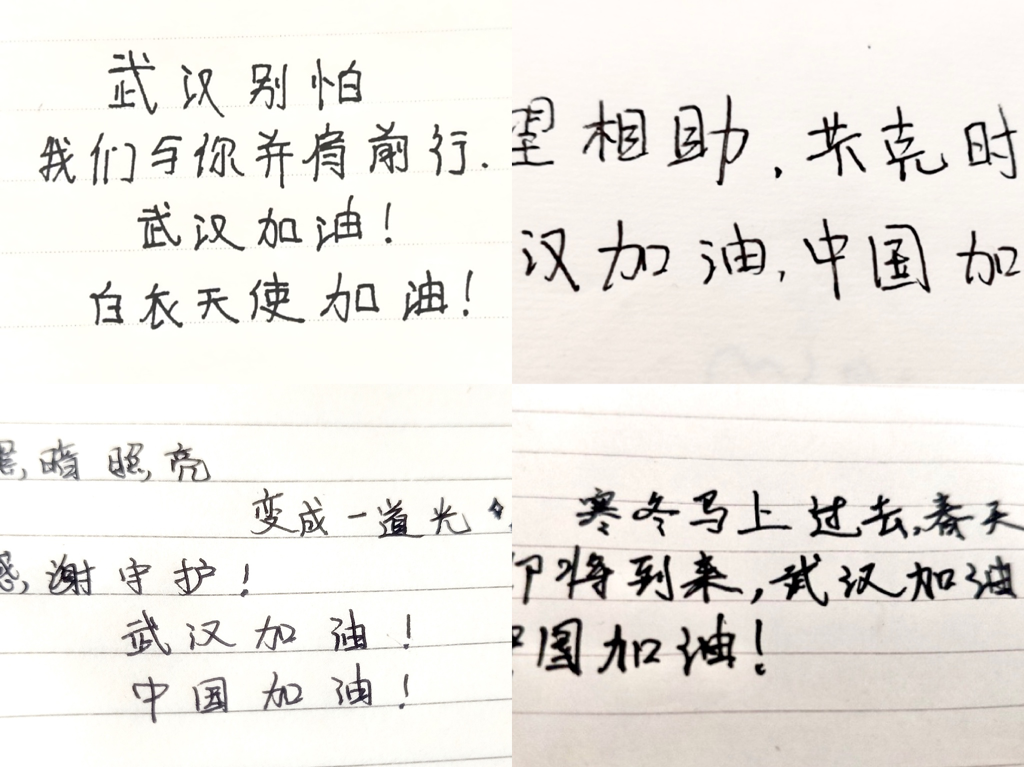 武汉别怕
我们与你并肩前行.
武汉加油！
白衣天使加油！
望相助，共克时
汉加油，中国加
暗照亮
变成一道光
感谢守护！
武汉加油！
中国加油！
寒冬马上过去，春天
即将到来，武汉加油
中国加油！